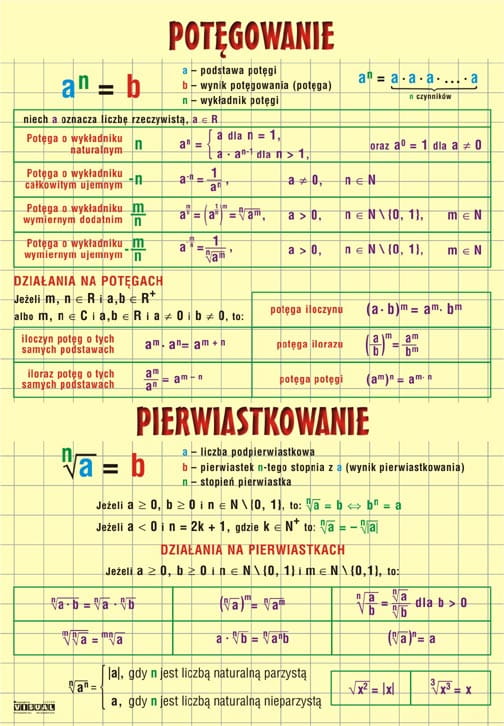 POTĘGOWANIE
aⁿ = b
a – podstawa potęgi
b – wynik potęgowania (potęga)
n – wykładnik potęgi
aⁿ = a · a · a · ... · a
n czynników
niech a oznacza liczbę rzeczywistą, a ∈ R
Potęga o wykładniku naturalnym n
aⁿ = { a dla n = 1,
a · aⁿ⁻¹ dla n > 1,
oraz a⁰ = 1 dla a ≠ 0
Potęga o wykładniku całkowitym ujemnym -n
a⁻ⁿ = 1/aⁿ, a ≠ 0, n ∈ N
Potęga o wykładniku wymiernym dodatnim m/n
a^(m/n) = (a^(1/n))^m = ⁿ√aᵐ, a > 0, n ∈ N \ {0, 1}, m ∈ N
Potęga o wykładniku wymiernym ujemnym -m/n
= 1/ⁿ√aᵐ, a > 0, n ∈ N \ {0, 1}, m ∈ N
DZIAŁANIA NA POTĘGACH
Jeżeli m, n ∈ R i a,b ∈ R⁺
albo m, n ∈ C i a,b ∈ R i a ≠ 0 i b ≠ 0, to:
potęga iloczynu (a · b)ᵐ = aᵐ · bᵐ
iloczyn potęg o tych samych podstawach aᵐ · aⁿ = aᵐ ⁺ ⁿ
potęga ilorazu (a/b)ᵐ = aᵐ/bᵐ
iloraz potęg o tych samych podstawach aᵐ/aⁿ = aᵐ ⁻ ⁿ
potęga potęgi (aᵐ)ⁿ = aᵐ˙ ⁿ
PIERWIASTKOWANIE
ⁿ√a = b
a – liczba podpierwiastkowa
b – pierwiastek n-tego stopnia z a (wynik pierwiastkowania)
n – stopień pierwiastka
Jeżeli a ≥ 0, b ≥ 0 i n ∈ N \ {0, 1}, to: ⁿ√a = b ⇔ bⁿ = a
Jeżeli a < 0 i n = 2k + 1, gdzie k ∈ N⁺ to: ⁿ√a = – ⁿ√|a|
DZIAŁANIA NA PIERWIASTKACH
Jeżeli a ≥ 0, b ≥ 0 i n ∈ N \ {0, 1} i m ∈ N \ {0,1}, to:
ⁿ√a · b = ⁿ√a · ⁿ√b
(ⁿ√a)ᵐ = ⁿ√aᵐ
ⁿ√(a/b) = ⁿ√a/ⁿ√b dla b > 0
ᵐ√ⁿ√a = ᵐⁿ√a
a · ⁿ√b = ⁿ√aⁿb
(ⁿ√a)ⁿ = a
ⁿ√aⁿ = { |a|, gdy n jest liczbą naturalną parzystą
a, gdy n jest liczbą naturalną nieparzystą
√x² = |x|
³√x³ = x
VISUAL